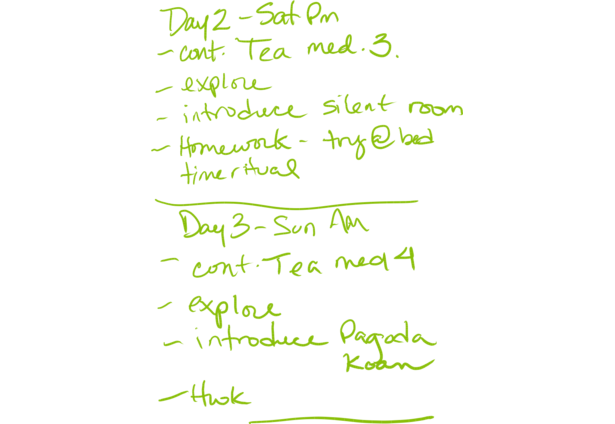 Day 2 - Sat Pm
- cont. Tea med. 3.
- explore
- introduce silent room
- Homework - try @ bed
time ritual
Day 3 - Sun Am
- cont. Tea med 4
- explore
- introduce Pagoda
Koan
- Hwk